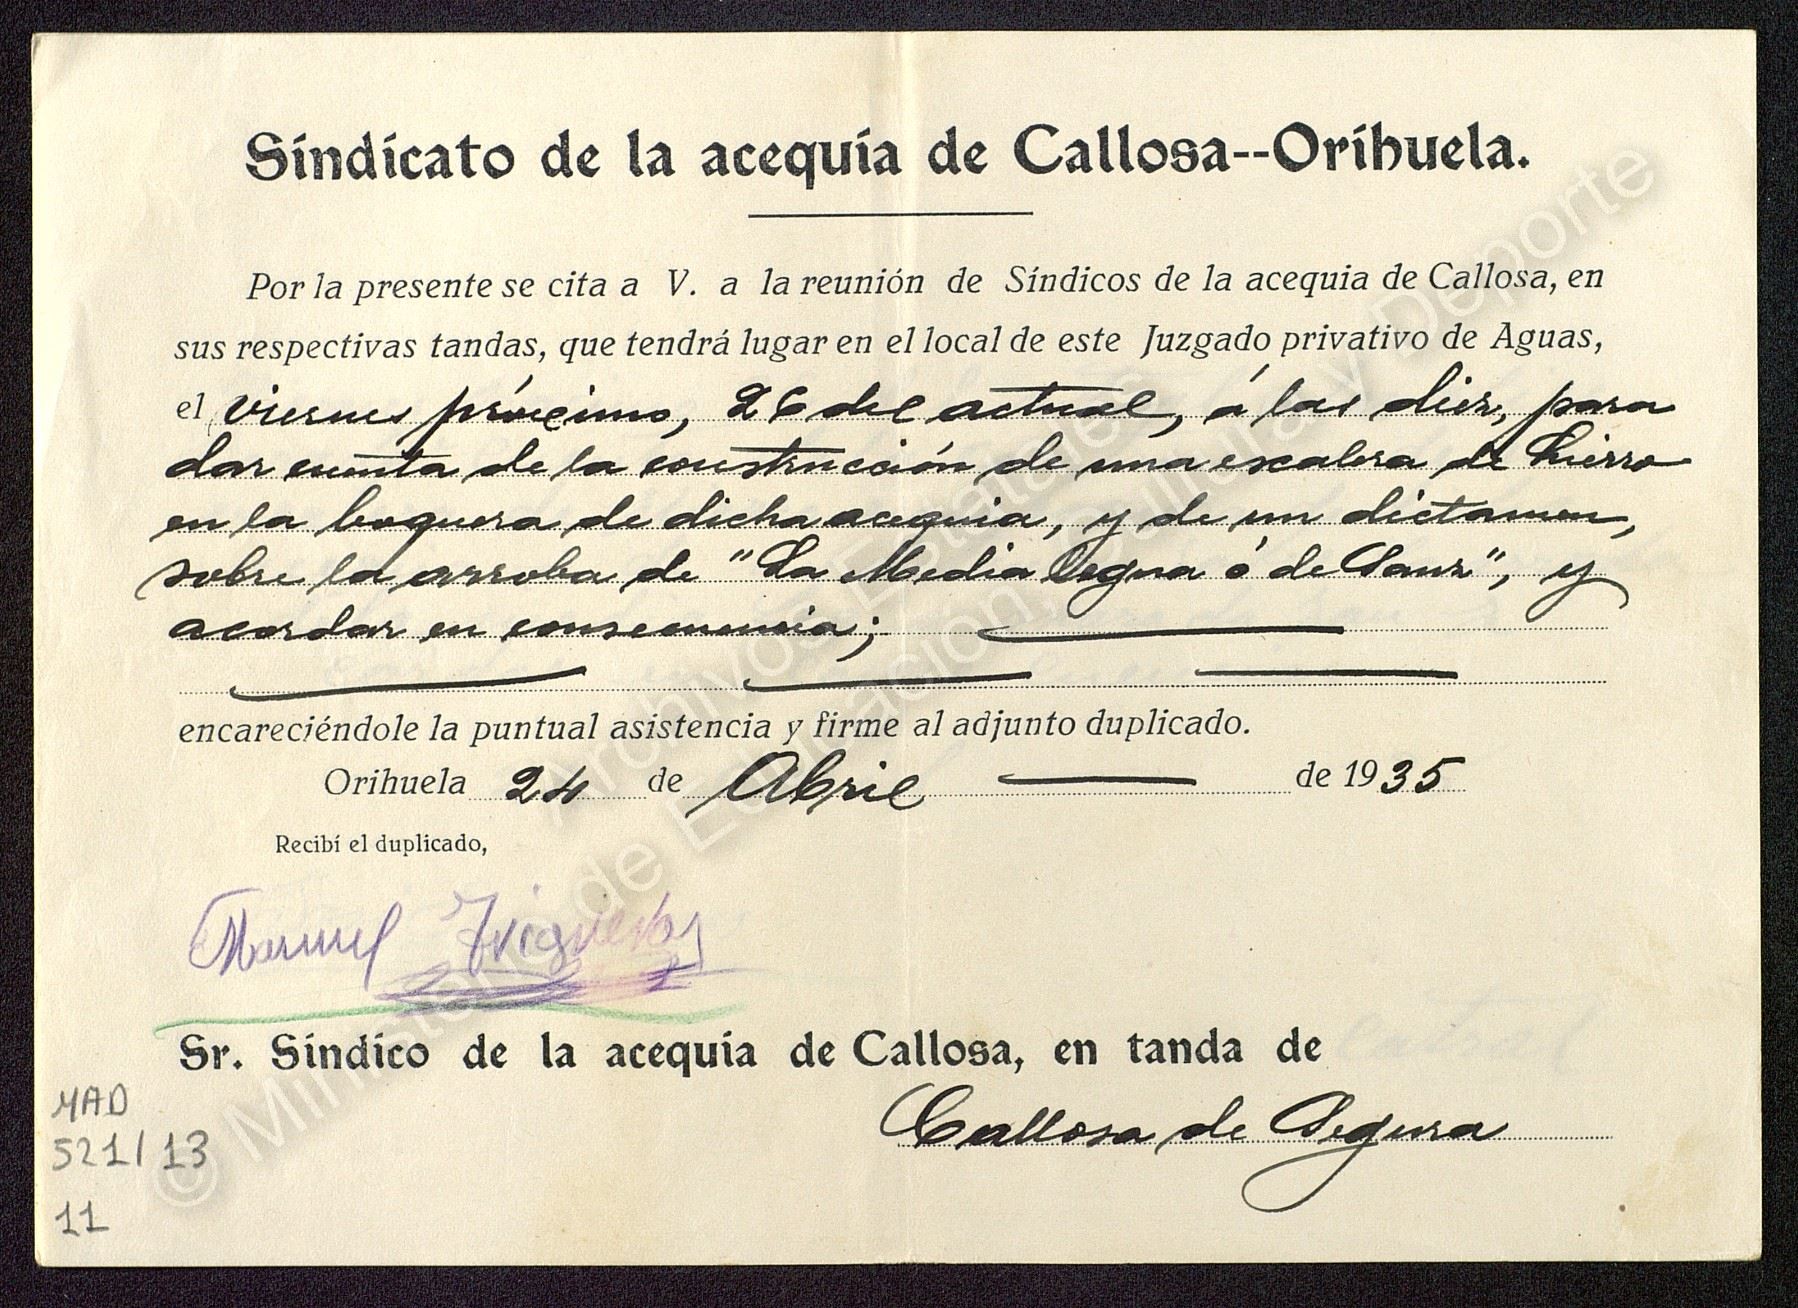 Sindicato de la acequia de Callosa--Orihuela.
Por la presente se cita a V. a la reunión de Síndicos de la acequia de Callosa, en
sus respectivas tandas, que tendrá lugar en el local de este Juzgado privativo de Aguas,
el viernes próximo, 26 del actual, á las diez, para
dar cuenta de la construcción de una escalera de hierro
en la boquera de dicha acequia, y de un dictamen,
sobre la arroba de "La Media legua ó de Sanz", y
acordar en consecuencia;
encareciéndole la puntual asistencia y firme al adjunto duplicado.
Orihuela 24 de Abril de 1935
Recibí el duplicado,
Manuel Trigueros
Sr. Síndico de la acequia de Callosa, en tanda de
Callosa de Segura
MAD
521/13
11
© Ministerio de Educación, Cultura y Deporte
Archivos Estatales